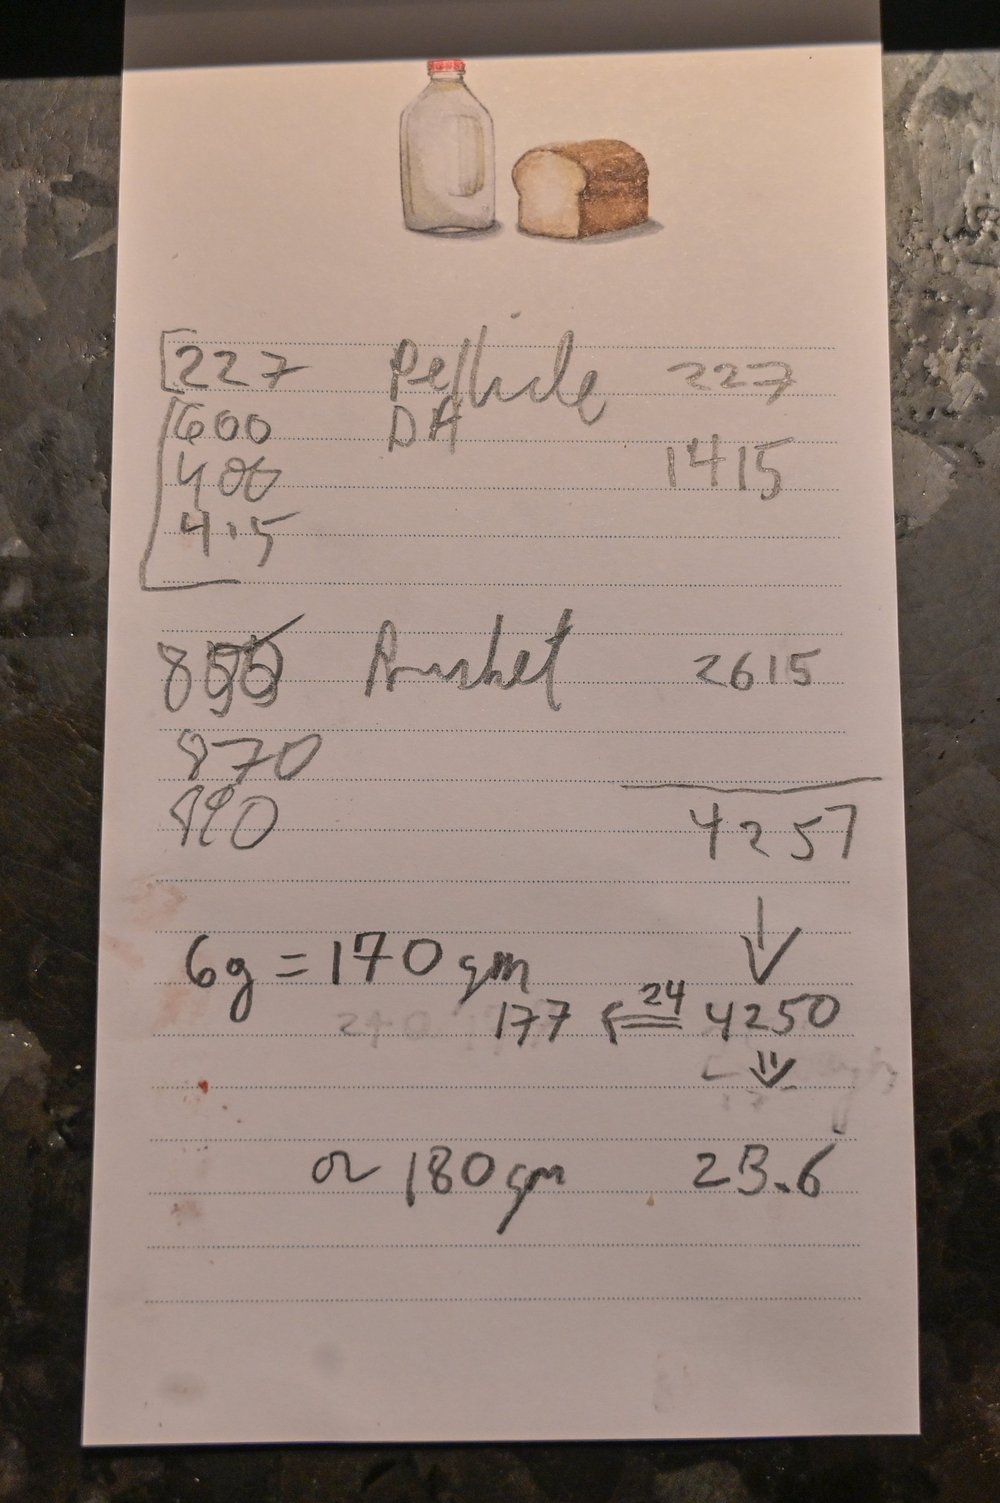 227 Pellicle 227
600 DA
1415
400
415
855 Brisket 2615
870
890
4257
↓
6g = 170 gm
177 ⇐ 24 4250
⇓
or 180 gm 23.6